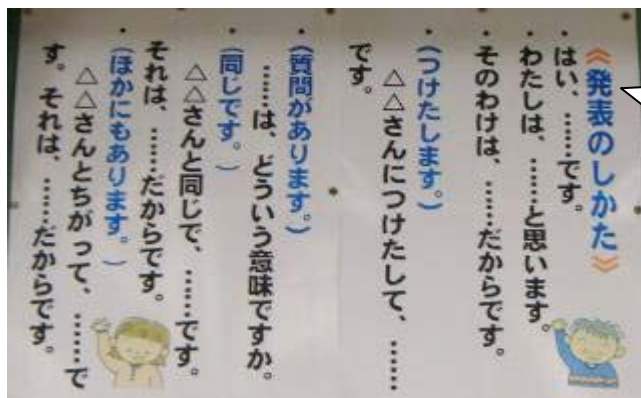 《発表のしかた》
・はい、……です。
・わたしは、……と思います。
・そのわけは、……だからです。
・(つけたします。)
△△さんにつけたして、……
です。
・(質問があります。)
……は、どういう意味ですか。
・(同じです。)
△△さんと同じで、……です。
それは、……だからです。
・(ほかにもあります。)
△△さんとちがって、……で
す。それは、……だからです。